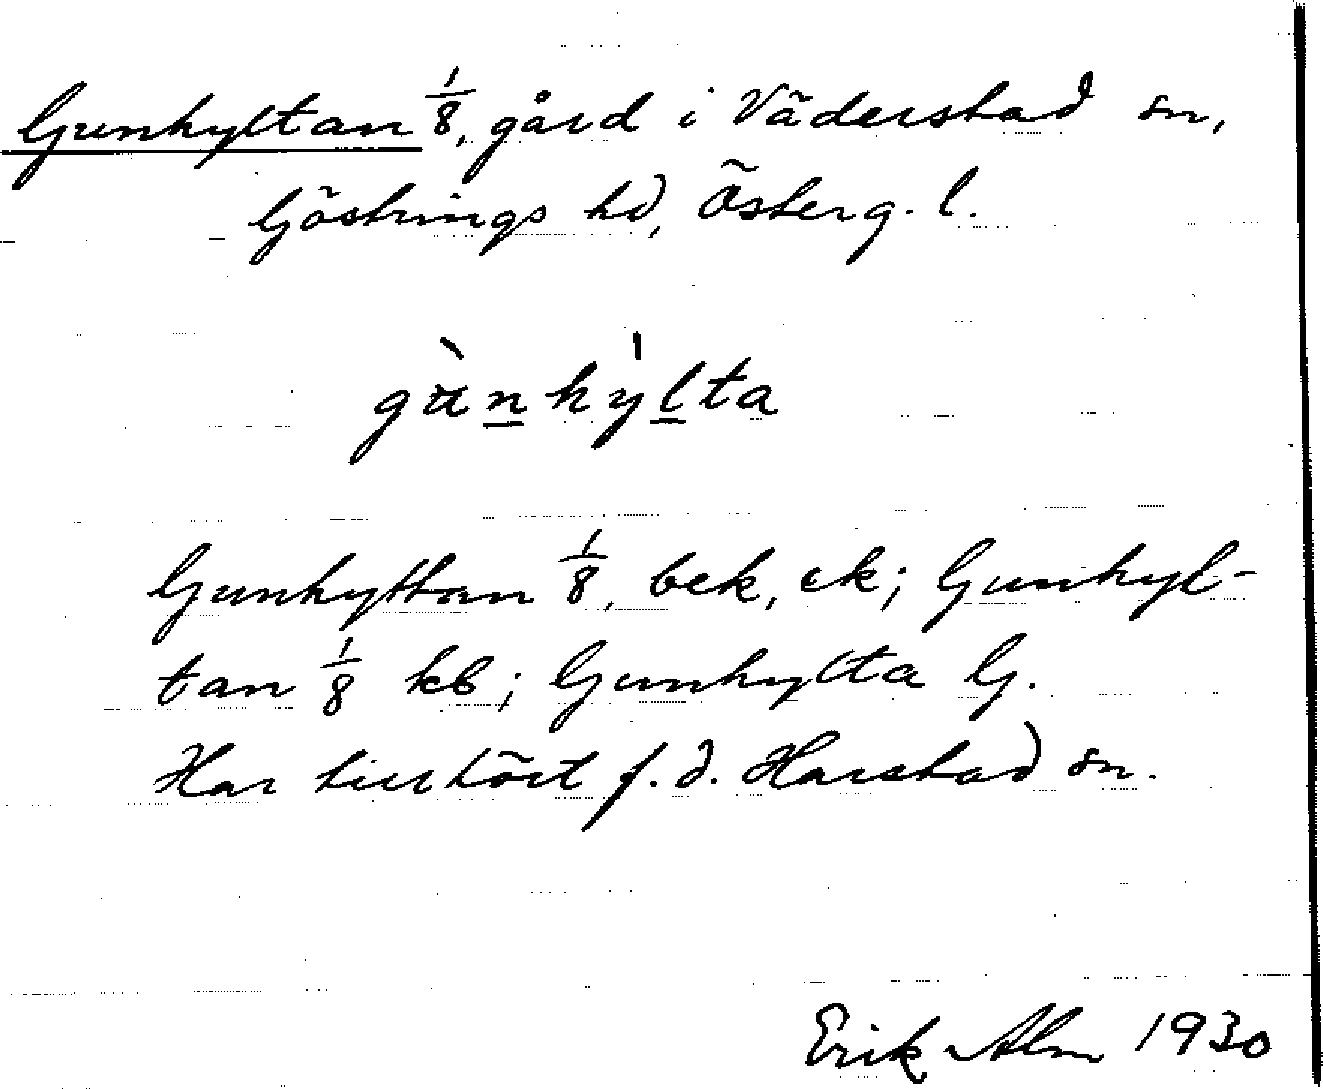 Gunhyltan 1/8, gård i Väderstad sn,
Göstrings hd, Österg. l.
gùnhỳlta
Gunhyttan 1/8, bek, ek; Gunhyl-
tan 1/8 kb; Gunhylta G.
Har tillhört f. d. Harstad sn.
Erik Alm 1930